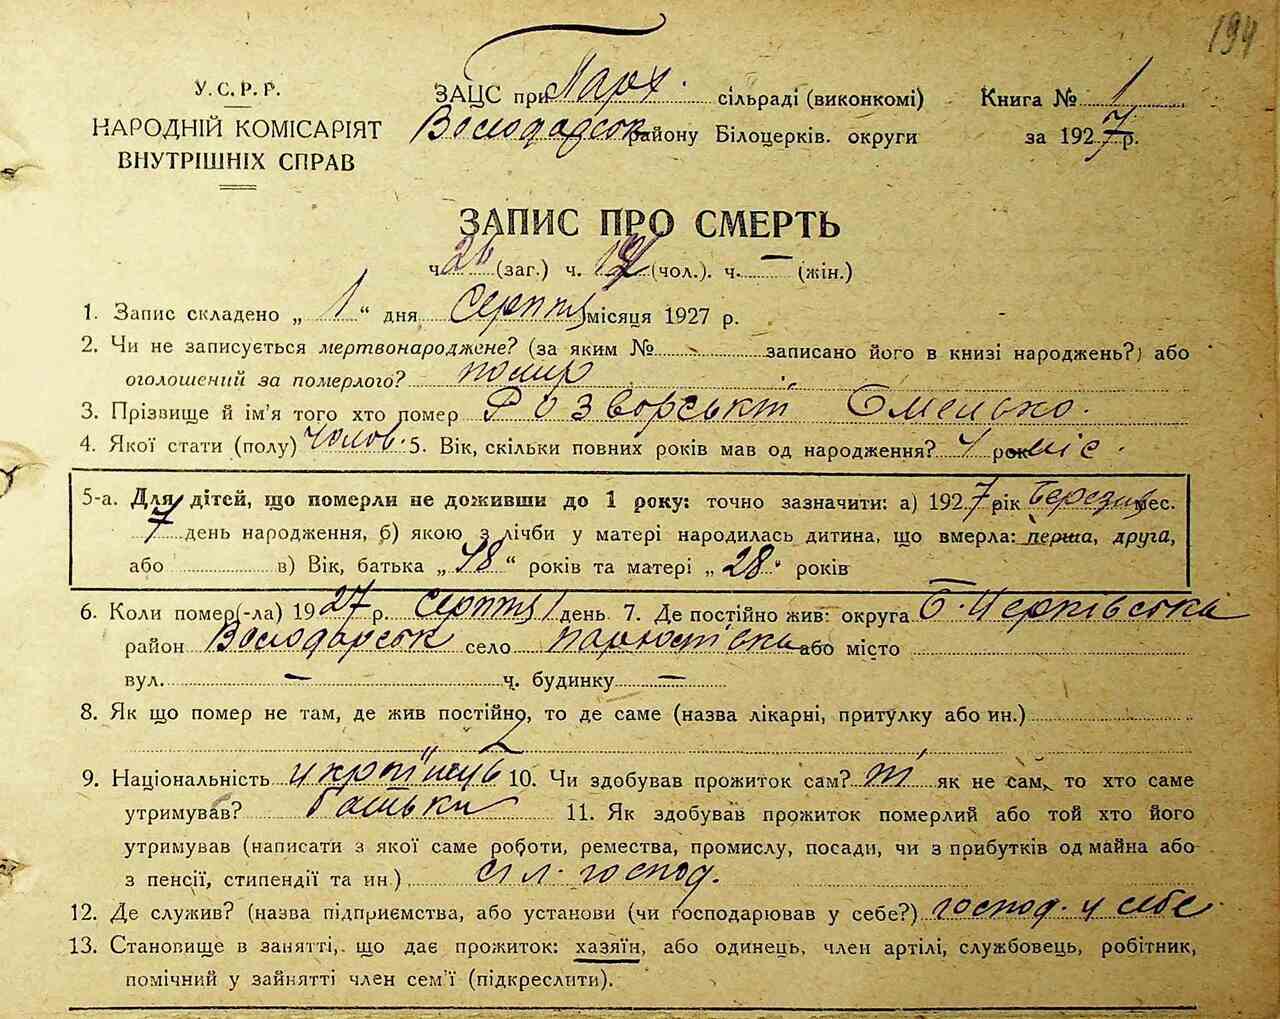 194
У.С.Р.Р.
НАРОДНІЙ КОМІСАРІЯТ
ВНУТРІШНІХ СПРАВ
ЗАЦС при Парх. сільраді (виконкомі)
Володарськ району Білоцерків. округи
Книга № 1
за 1927 р.
ЗАПИС ПРО СМЕРТЬ
ч. 26 (заг.) ч. (чол.). ч. — (жін.)
1. Запис складено „ 1 “ дня Серпня місяця 1927 р.
2. Чи не записується мертвонароджене? (за яким № записано його в книзі народжень?) або
оголошений за померлого? помир
3. Прізвище й ім'я того хто помер Розворський Омелько.
4. Якої стати (полу) чолов. 5. Вік, скільки повних років мав од народження? 4 рок міс.
5-а. Для дітей, що померли не доживши до 1 року: точно зазначити: а) 1927 рік Березня мес.
7 день народження, б) якою з лічби у матері народилась дитина, що вмерла: перша, друга,
або в) Вік, батька „ 48 “ років та матері „ 28 “ років
6. Коли помер(-ла) 1927 р. серпня 1 день 7. Де постійно жив: округа Б. Церківська
район Володарськ село або місто
вул. — ч. будинку —
8. Як що помер не там, де жив постійно, то де саме (назва лікарні, притулку або ин.)
9. Національність українець 10. Чи здобував прожиток сам? ні як не сам, то хто саме
утримував? батьки 11. Як здобував прожиток померлий або той хто його
утримував (написати з якої саме роботи, ремества, промислу, посади, чи з прибутків од майна або
з пенсії, стипендії та ин.) сіл. господ.
12. Де служив? (назва підприємства, або установи (чи господарював у себе?) господ. у себе
13. Становище в занятті, що дає прожиток: хазяїн, або одинець, член артілі, службовець, робітник,
помічний у зайнятті член сем'ї (підкреслити).